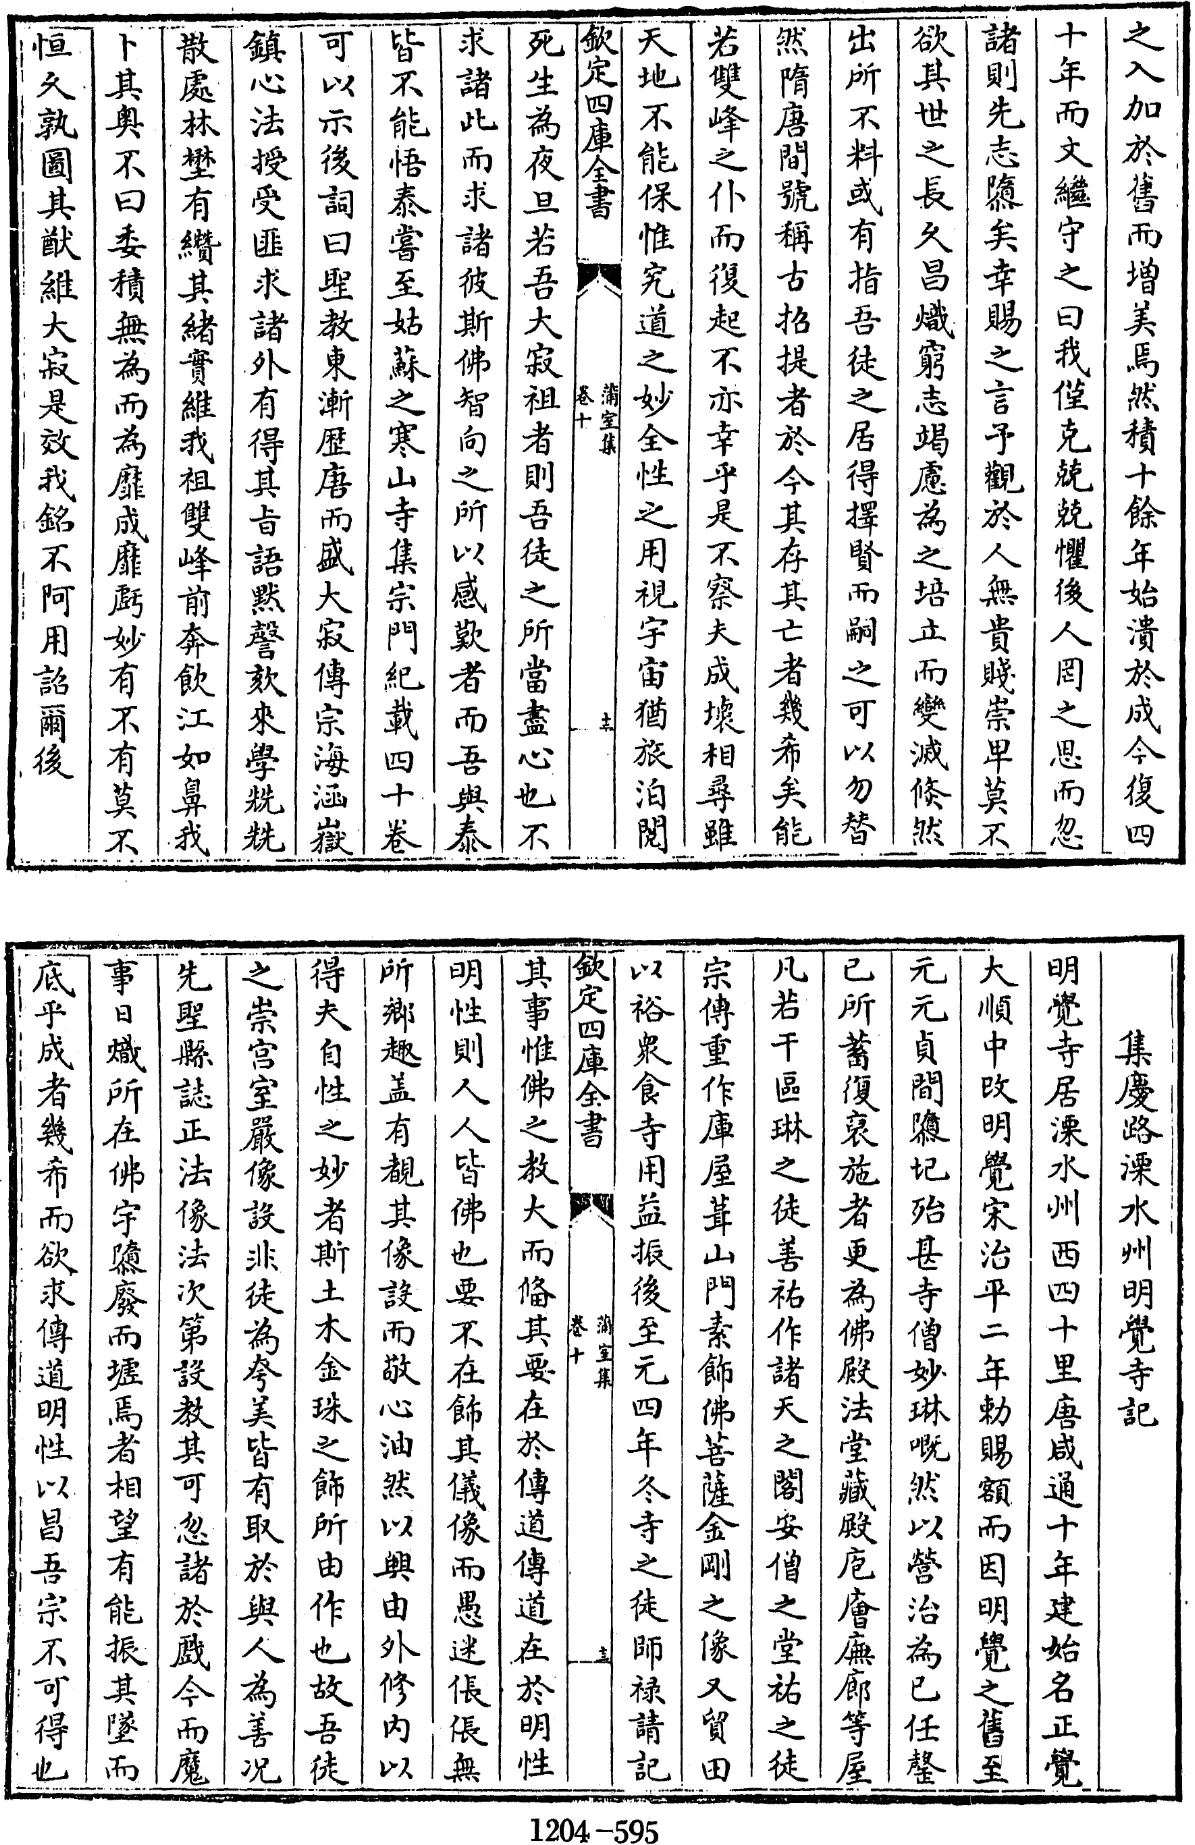 之入加於舊而增美焉然積十餘年始潰於成今復四
十年而文繼守之曰我僅克兢兢懼後人罔之思而忽
諸則先志隳矣幸賜之言予觀於人無貴賤崇卑莫不
欲其世之長久昌熾窮志竭慮為之培立而變滅倐然
出所不料或有指吾徒之居得擇賢而嗣之可以勿替
然隋唐間號稱古招提者於今其存其亡者幾希矣能
若雙峰之仆而復起不亦幸乎是不察夫成壞相尋雖
天地不能保惟究道之妙全性之用視宇宙猶旅泊閱
欽定四庫全書
蒲室集
卷十
十二
死生為夜旦若吾大寂祖者則吾徒之所當盡心也不
求諸此而求諸彼斯佛智向之所以感歎者而吾與泰
皆不能悟泰嘗至姑蘇之寒山寺集宗門紀載四十卷
可以示後詞曰聖教東漸歴唐而盛大寂傳宗海涵嶽
鎮心法授受匪求諸外有得其旨語黙謦欬來學甡甡
散處林壄有纘其緒實維我祖雙峰前奔飲江如鼻我
卜其奥不曰委積無為而為靡成靡虧妙有不有莫不
恒久孰圖其猷維大寂是效我銘不阿用詔爾後
集慶路溧水州明覺寺記
明覺寺居溧水州西四十里唐咸通十年建始名正覺
大順中改明覺宋治平二年勅賜額而因明覺之舊至
元元貞間隳圮殆甚寺僧妙琳嘅然以營治為已任罄
已所蓄復裒施者更為佛殿法堂藏殿庖廥廡廊等屋
凡若干區琳之徒善祐作諸天之閣安僧之堂祐之徒
宗傳重作庫屋葺山門素飾佛菩薩金剛之像又貿田
以裕衆食寺用益振後至元四年冬寺之徒師禄請記
欽定四庫全書
蒲室集
卷十
十三
其事惟佛之教大而俻其要在於傳道傳道在於明性
明性則人人皆佛也要不在飾其儀像而愚迷倀倀無
所鄉趣盖有覩其像設而敬心油然以興由外修内以
得夫自性之妙者斯土木金珠之飾所由作也故吾徒
之崇宫室嚴像設非徒為夸美皆有取於與人為善况
先聖縣誌正法像法次第設教其可忽諸於戲今而魔
事日熾所在佛宇隳廢而墟焉者相望有能振其墜而
底乎成者幾希而欲求傳道明性以昌吾宗不可得也
1204-595